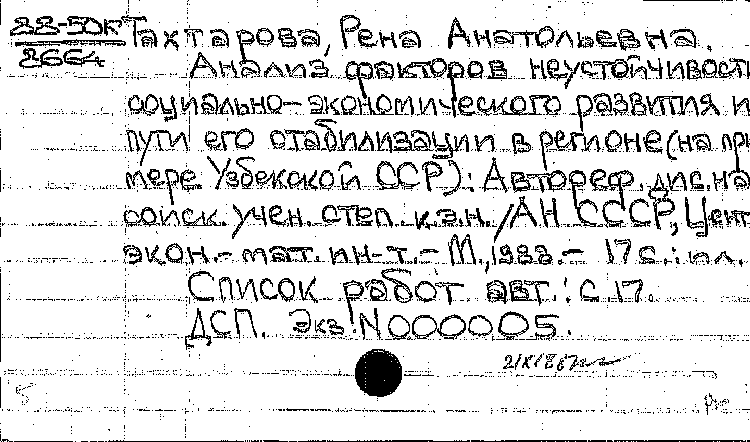 88-50К
8664
Тахтарова, Рена Анатольевна.
Анализ факторов неустойчивост
социально-экономического развития и
пути его стабилизации в регионе (на при
мере Узбекской ССР): Автореф. дис. на
соиск. учен. степ. к.э.н. / АН СССР, Цент
экон.-мат. ин-т. - М., 1988. - 17 с.: ил.
Список работ авт.: с 17.
ДСП. Экз. N 000005.
5